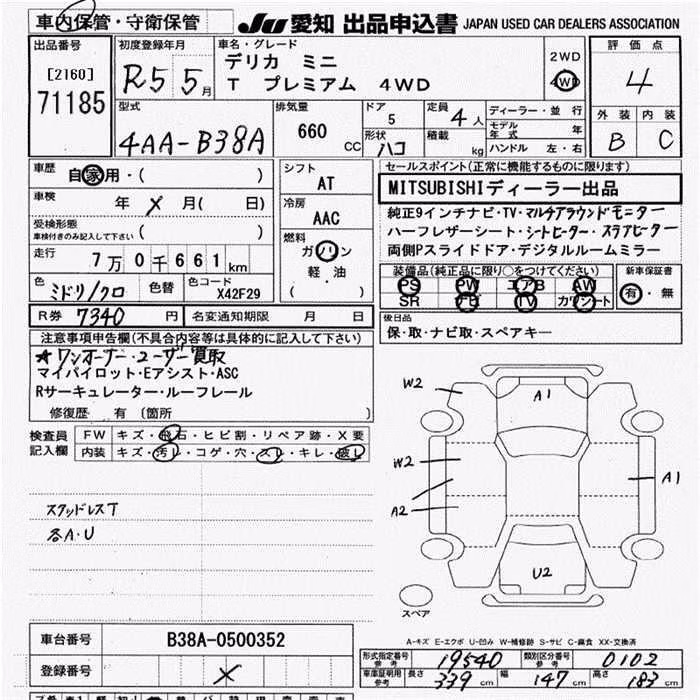 車内保管・守衛保管
JU 愛知 出品申込書 JAPAN USED CAR DEALERS ASSOCIATION
出品番号
[2160]
71185
初度登録年月
R5 5月
車名・グレード
デリカ ミニ
T プレミアム 4WD
2WD
4WD
評価点
4
外装 内装
B C
型式
4AA-B38A
排気量
660 CC
ドア
5
形状
ハコ
定員
4人
積載
kg
ディーラー・並行
モデル年式 年
ハンドル 左・右
車歴
自家用・( )
車検 年 X 月( 日)
受検形態
車検付きのみ記入して下さい ( )
走行 7万0千661km
色 ミドリ/クロ 色替 色コード X42F29
シフト
AT
冷房
AAC
燃料
ガソリン
軽・油
( )
セールスポイント(正常に機能するものに限ります)
MITSUBISHIディーラー出品
純正9インチナビ・TV・マルチアラウンドモニター
ハーフレザーシート・シートヒーター・ステアヒーター
両側Pスライドドア・デジタルルームミラー
装備品(純正品に限り○をつけてください)
PS PW エアB AW
SR ナビ TV カワシート
新車保証書
有・無
R券 7340 円 名変通知期限 月 日
後日品
保・取・ナビ取・スペアキー
注意事項申告欄(不具合内容等は具体的に記入して下さい)
★ワンオーナー・ユーザー買取
マイパイロット・Eアシスト・ASC
Rサーキュレーター・ルーフレール
修復歴 有 (箇所 )
検査員記入欄
FW キズ・飛石・ヒビ割・リペア跡・X要
内装 キズ・汚レ・コゲ・穴・スレ・キレ・破レ
スタッドレスT
各A・U
W2
A1
W2
A2
A1
U2
スペア
A-キズ E-エクボ U-凹み W-補修跡 S-サビ C-腐食 XX-交換済
車台番号 B38A-0500352
登録番号 X
形式指定番号 参考 19540 類別区分番号 参考 0102
車庫証明用 参考 長さ 339cm 幅 147cm 高さ 183cm